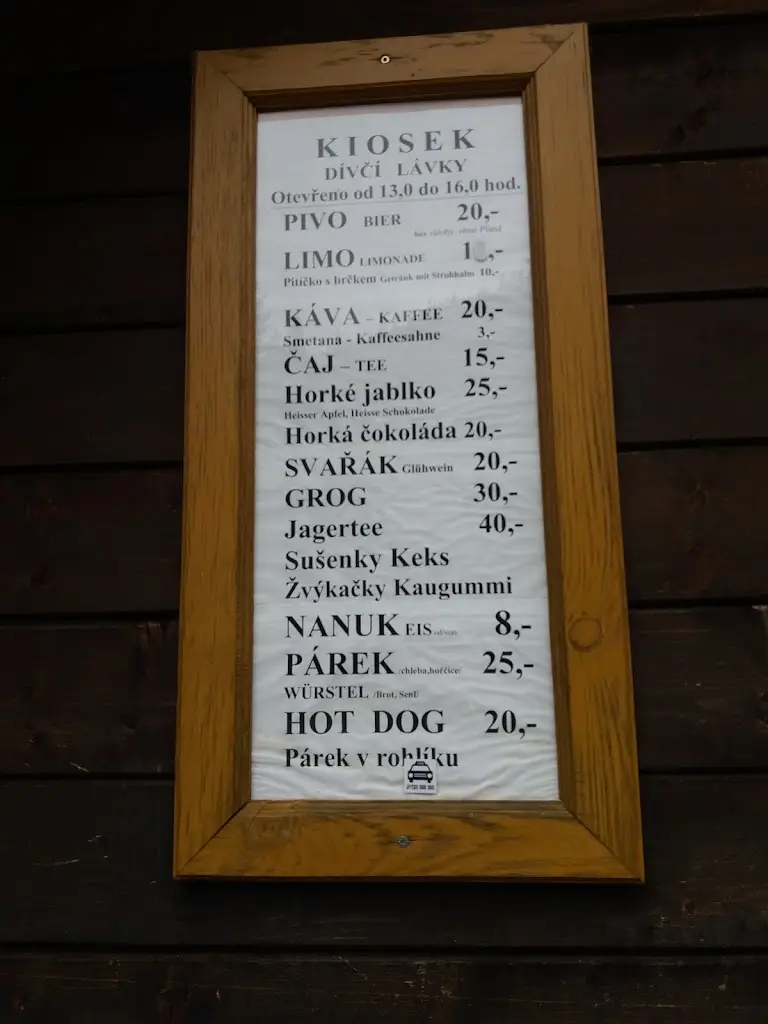 KIOSEK
DÍVČÍ LÁVKY
Otevřeno od 13,0 do 16,0 hod.
PIVO BIER 20,-
bez zálohy, ohne Pfand
LIMO LIMONADE
Pitíčko s brčkem Getränk mit Strohhalm 10,-
KÁVA – KAFFEE 20,-
Smetana - Kaffeesahne 3,-
ČAJ – TEE 15,-
Horké jablko 25,-
Heisser Apfel, Heisse Schokolade
Horká čokoláda 20,-
SVAŘÁK Glühwein 20,-
GROG 30,-
Jagertee 40,-
Sušenky Keks
Žvýkačky Kaugummi
NANUK EIS 8,-
PÁREK /chleba,hořčice/ 25,-
WÜRSTEL /Brot, Senf/
HOT DOG 20,-
Párek v rohlíku